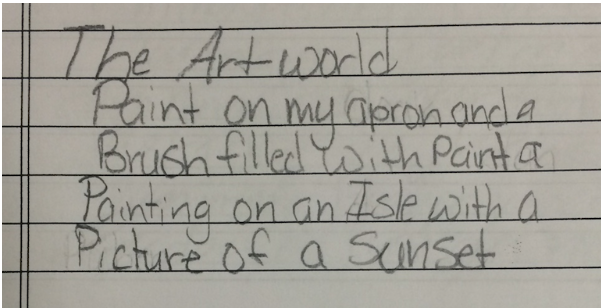 The Art world
Paint on my apron and a
Brush filled with Paint a
Painting on an Isle with a
Picture of a Sunset